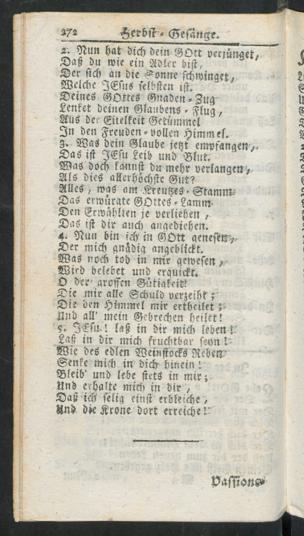 272 Herbst-Gesänge.
2. Nun hat dich dein GOtt verjünget,
Daß du wie ein Adler bist,
Der sich an die Sonne schwinget,
Welche JEsus selbsten ist.
Deines GOttes Gnaden-Zug
Lenket deinen Glaubens-Flug,
Aus der Eitelkeit Getümmel
In den Freuden-vollen Himmel.
3. Was dein Glaube jetzt empfangen,
Das ist JEsu Leib und Blut.
Was doch kannst du mehr verlangen,
Als dies allerhöchste Gut?
Alles, was am Kreutzes-Stamm
Das erwürgte GOttes-Lamm
Den Erwählten je verliehen,
Das ist dir auch angediehen.
4. Nun bin ich in GOtt genesen,
Der mich gnädig angeblickt.
Was noch tod in mir gewesen,
Wird belebet und erquickt.
O der grossen Gütigkeit!
Die mir alle Schuld verzeiht;
Die den Himmel mir ertheilet;
Und all' mein Gebrechen heilet!
5. JEsu! laß in dir mich leben!
Laß in dir mich fruchtbar seyn!
Wie des edlen Weinstocks Reben
Senke mich in dich hinein!
Bleib' und lebe stets in mir;
Und erhalte mich in dir,
Daß ich selig einst erbleiche,
Und die Krone dort erreiche!
Passions-